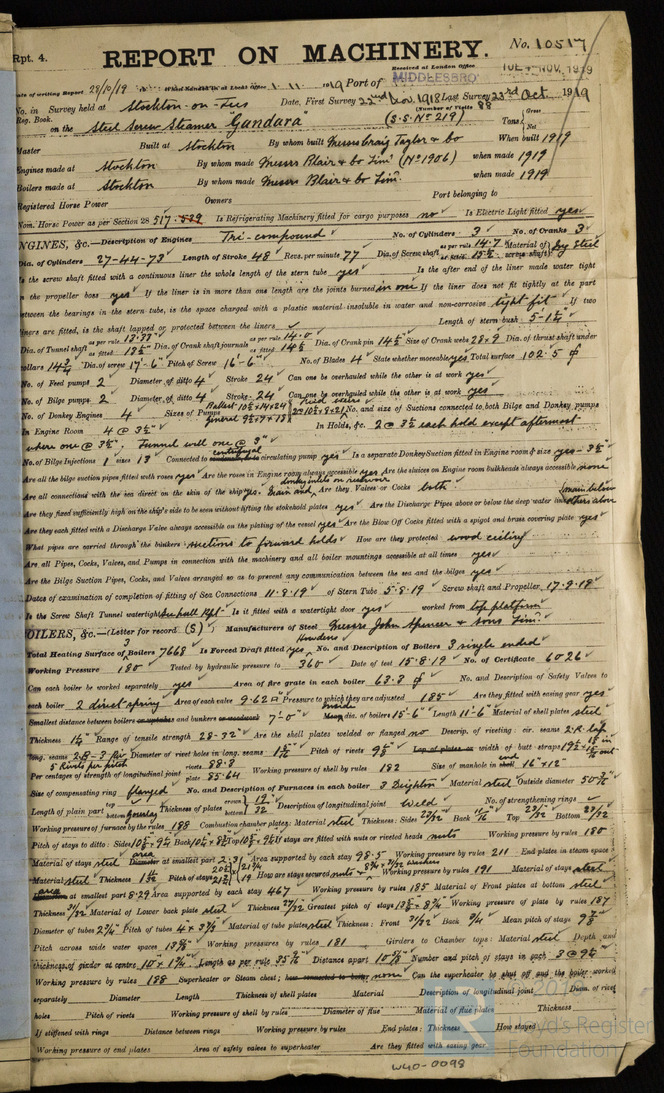 Rpt. 4.
REPORT ON MACHINERY.
No. 10517
Received at London Office
TUE 4 NOV. 1919
Date of writing Report 28/10/19 When handed in at Local Office 1-11-1919 Port of MIDDLESBRO'
No. in Survey held at Stockton-on-Tees Date, First Survey 22nd Nov. 1918 Last Survey 23rd Oct 1919
Reg. Book. (Number of Visits 88
on the Steel Screw Steamer "Gundara" (S.S. No 219) Tons Gross Net
Master Built at Stockton By whom built Messrs Craig Taylor & Co When built 1919
Engines made at Stockton By whom made Messrs Blair & Co Lim. (No 1906) when made 1919
Boilers made at Stockton By whom made Messrs Blair & Co Lim. when made 1919
Registered Horse Power Owners Port belonging to
Nom. Horse Power as per Section 28 517 529 Is Refrigerating Machinery fitted for cargo purposes no Is Electric Light fitted yes
ENGINES, &c.—Description of Engines Tri-compound No. of Cylinders 3 No. of Cranks 3
Dia. of Cylinders 27-44-73 Length of Stroke 48 Revs. per minute 77 Dia. of Screw shaft as per rule 14.7 Material of screw shaft Steel
Is the screw shaft fitted with a continuous liner the whole length of the stern tube yes Is the after end of the liner made water tight
in the propeller boss yes If the liner is in more than one length are the joints burned in one If the liner does not fit tightly at the part
between the bearings in the stern tube, is the space charged with a plastic material insoluble in water and non-corrosive tight fit If two
liners are fitted, is the shaft lapped or protected between the liners Length of stern bush 5-1½
Dia. of Tunnel shaft as per rule 13.33 Dia. of Crank shaft journals as per rule 14.0 as fitted 14½ Dia. of Crank pin 14½ Size of Crank webs 28×9 Dia. of thrust shaft under
collars 14¾ Dia. of screw 17'-6" Pitch of Screw 16'-6" No. of Blades 4 State whether moveable yes Total surface 102.5
No. of Feed pumps 2 Diameter of ditto 4 Stroke 24 Can one be overhauled while the other is at work yes
No. of Bilge pumps 2 Diameter of ditto 4 Stroke 24 Can one be overhauled while the other is at work yes
No. of Donkey Engines 4 Sizes of Pumps Ballast 10½×14×24 General 9½×7×18 No. and size of Suctions connected to both Bilge and Donkey pumps
In Engine Room 4 @ 3½" In Holds, &c. 2 @ 3½ each hold except aftermost
where one @ 3½". Tunnel well one @ 3"
No. of Bilge Injections 1 sizes 13 Connected to centrifugal circulating pump yes Is a separate Donkey Suction fitted in Engine room & size yes-3½
Are all the bilge suction pipes fitted with roses yes Are the roses in Engine room always accessible yes Are the sluices on Engine room bulkheads always accessible none
Are all connections with the sea direct on the skin of the ship yes. Are they Valves or Cocks both
Are they fixed sufficiently high on the ship's side to be seen without lifting the stokehold plates yes Are the Discharge Pipes above or below the deep water line main below others above
Are they each fitted with a Discharge Valve always accessible on the plating of the vessel yes Are the Blow Off Cocks fitted with a spigot and brass covering plate yes
What pipes are carried through the bunkers suctions to forward holds How are they protected wood ceiling
Are all Pipes, Cocks, Valves, and Pumps in connection with the machinery and all boiler mountings accessible at all times yes
Are the Bilge Suction Pipes, Cocks, and Valves arranged so as to prevent communication between the sea and the bilges yes
Dates of examination of completion of fitting of Sea Connections 11.8.19 of Stern Tube 5.8.19 Screw shaft and Propeller 17.9.19
Is the Screw Shaft Tunnel watertight See hull Rpt. Is it fitted with a watertight door yes worked from top platform
BOILERS, &c.—(Letter for record (S)) Manufacturers of Steel Messrs John Spencer & Sons Lim.
Total Heating Surface of 3 Boilers 7668 Is Forced Draft fitted Howdens yes No. and Description of Boilers 3 single ended
Working Pressure 180 Tested by hydraulic pressure to 360 Date of test 15.8.19 No. of Certificate 6026
Can each boiler be worked separately yes Area of fire grate in each boiler 63.8 No. and Description of Safety Valves to
each boiler 2 direct spring Area of each valve 9.62 Pressure to which they are adjusted 185 Are they fitted with easing gear yes
Smallest distance between boilers and bunkers 7'-0" Inside dia. of boilers 15'-6" Length 11'-6" Material of shell plates steel
Thickness 1¼ Range of tensile strength 28-32 Are the shell plates welded or flanged no Descrip. of riveting: cir. seams 2.R. lap
long. seams Diameter of rivet holes in long. seams Pitch of rivets 9⅝ width of butt straps
Per centages of strength of longitudinal joint rivets 88.8 plate 85.64 Working pressure of shell by rules 182 Size of manhole in end 16×12
Size of compensating ring flanged No. and Description of Furnaces in each boiler 3 Deighton Material steel Outside diameter
Length of plain part top bottom Thickness of plates crown bottom 19/32 Description of longitudinal joint weld No. of strengthening rings
Working pressure of furnace by the rules 188 Combustion chamber plates: Material steel Thickness: Sides 23/32 Back 11/16 Top 23/32 Bottom 23/32
Pitch of stays to ditto: Sides Back Top If stays are fitted with nuts or riveted heads nuts Working pressure by rules 180
Material of stays steel area at smallest part 2.31 Area supported by each stay 98.5 Working pressure by rules 211 End plates in steam space
Material steel Thickness Pitch of stays How are stays secured Working pressure by rules 191 Material of stays steel
area at smallest part 8.29 Area supported by each stay 467 Working pressure by rules 185 Material of Front plates at bottom steel
Thickness 31/32 Material of Lower back plate steel Thickness 27/32 Greatest pitch of stays Working pressure of plate by rules 187
Diameter of tubes 2¾ Pitch of tubes 4×3⅞ Material of tube plates steel Thickness: Front 31/32 Back ¾ Mean pitch of stays
Pitch across wide water spaces Working pressures by rules 181 Girders to Chamber tops: Material steel Depth and
thickness of girder at centre 10×1¾ Length as per rule Distance apart Number and pitch of stays in each
Working pressure by rules 188 Superheater or Steam chest; how connected to boiler none Can the superheater be shut off and the boiler worked
separately Diameter Length Thickness of shell plates Material Description of longitudinal joint Diam. of rivet
holes Pitch of rivets Working pressure of shell by rules Diameter of flue Material of flue plates Thickness
If stiffened with rings Distance between rings Working pressure by rules End plates: Thickness How stayed
Working pressure of end plates Area of safety valves to superheater Are they fitted with easing gear
Lloyd's Register
Foundation
W40-0098